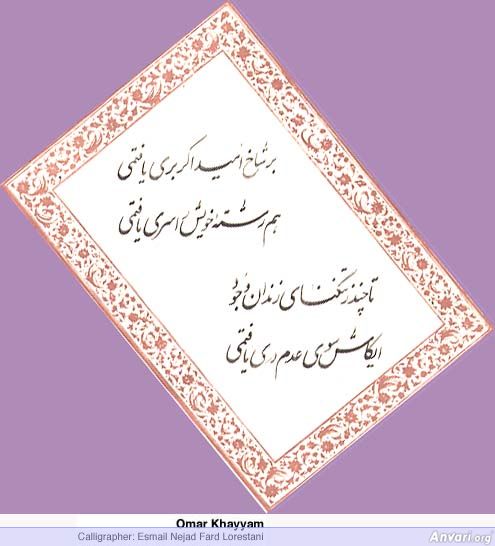 بر شاخ امید اگر بری یافتمی
هم رشتهٔ خویش را سری یافتمی
تا چند ز تنگنای زندان وجود
ایکاش سوی عدم دری یافتمی
Omar Khayyam
Calligrapher: Esmail Nejad Fard Lorestani
Anvari.org